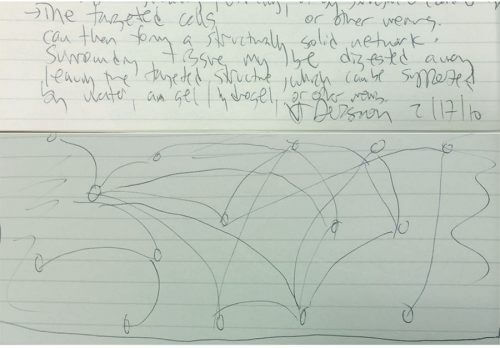 → The targeted cells or other means.
can then form a structurally solid network.
Surrounding tissue my be digested away
leaving the targeted structure, which can be supported
by water, an gel / hydrogel, or other means.
2/17/10